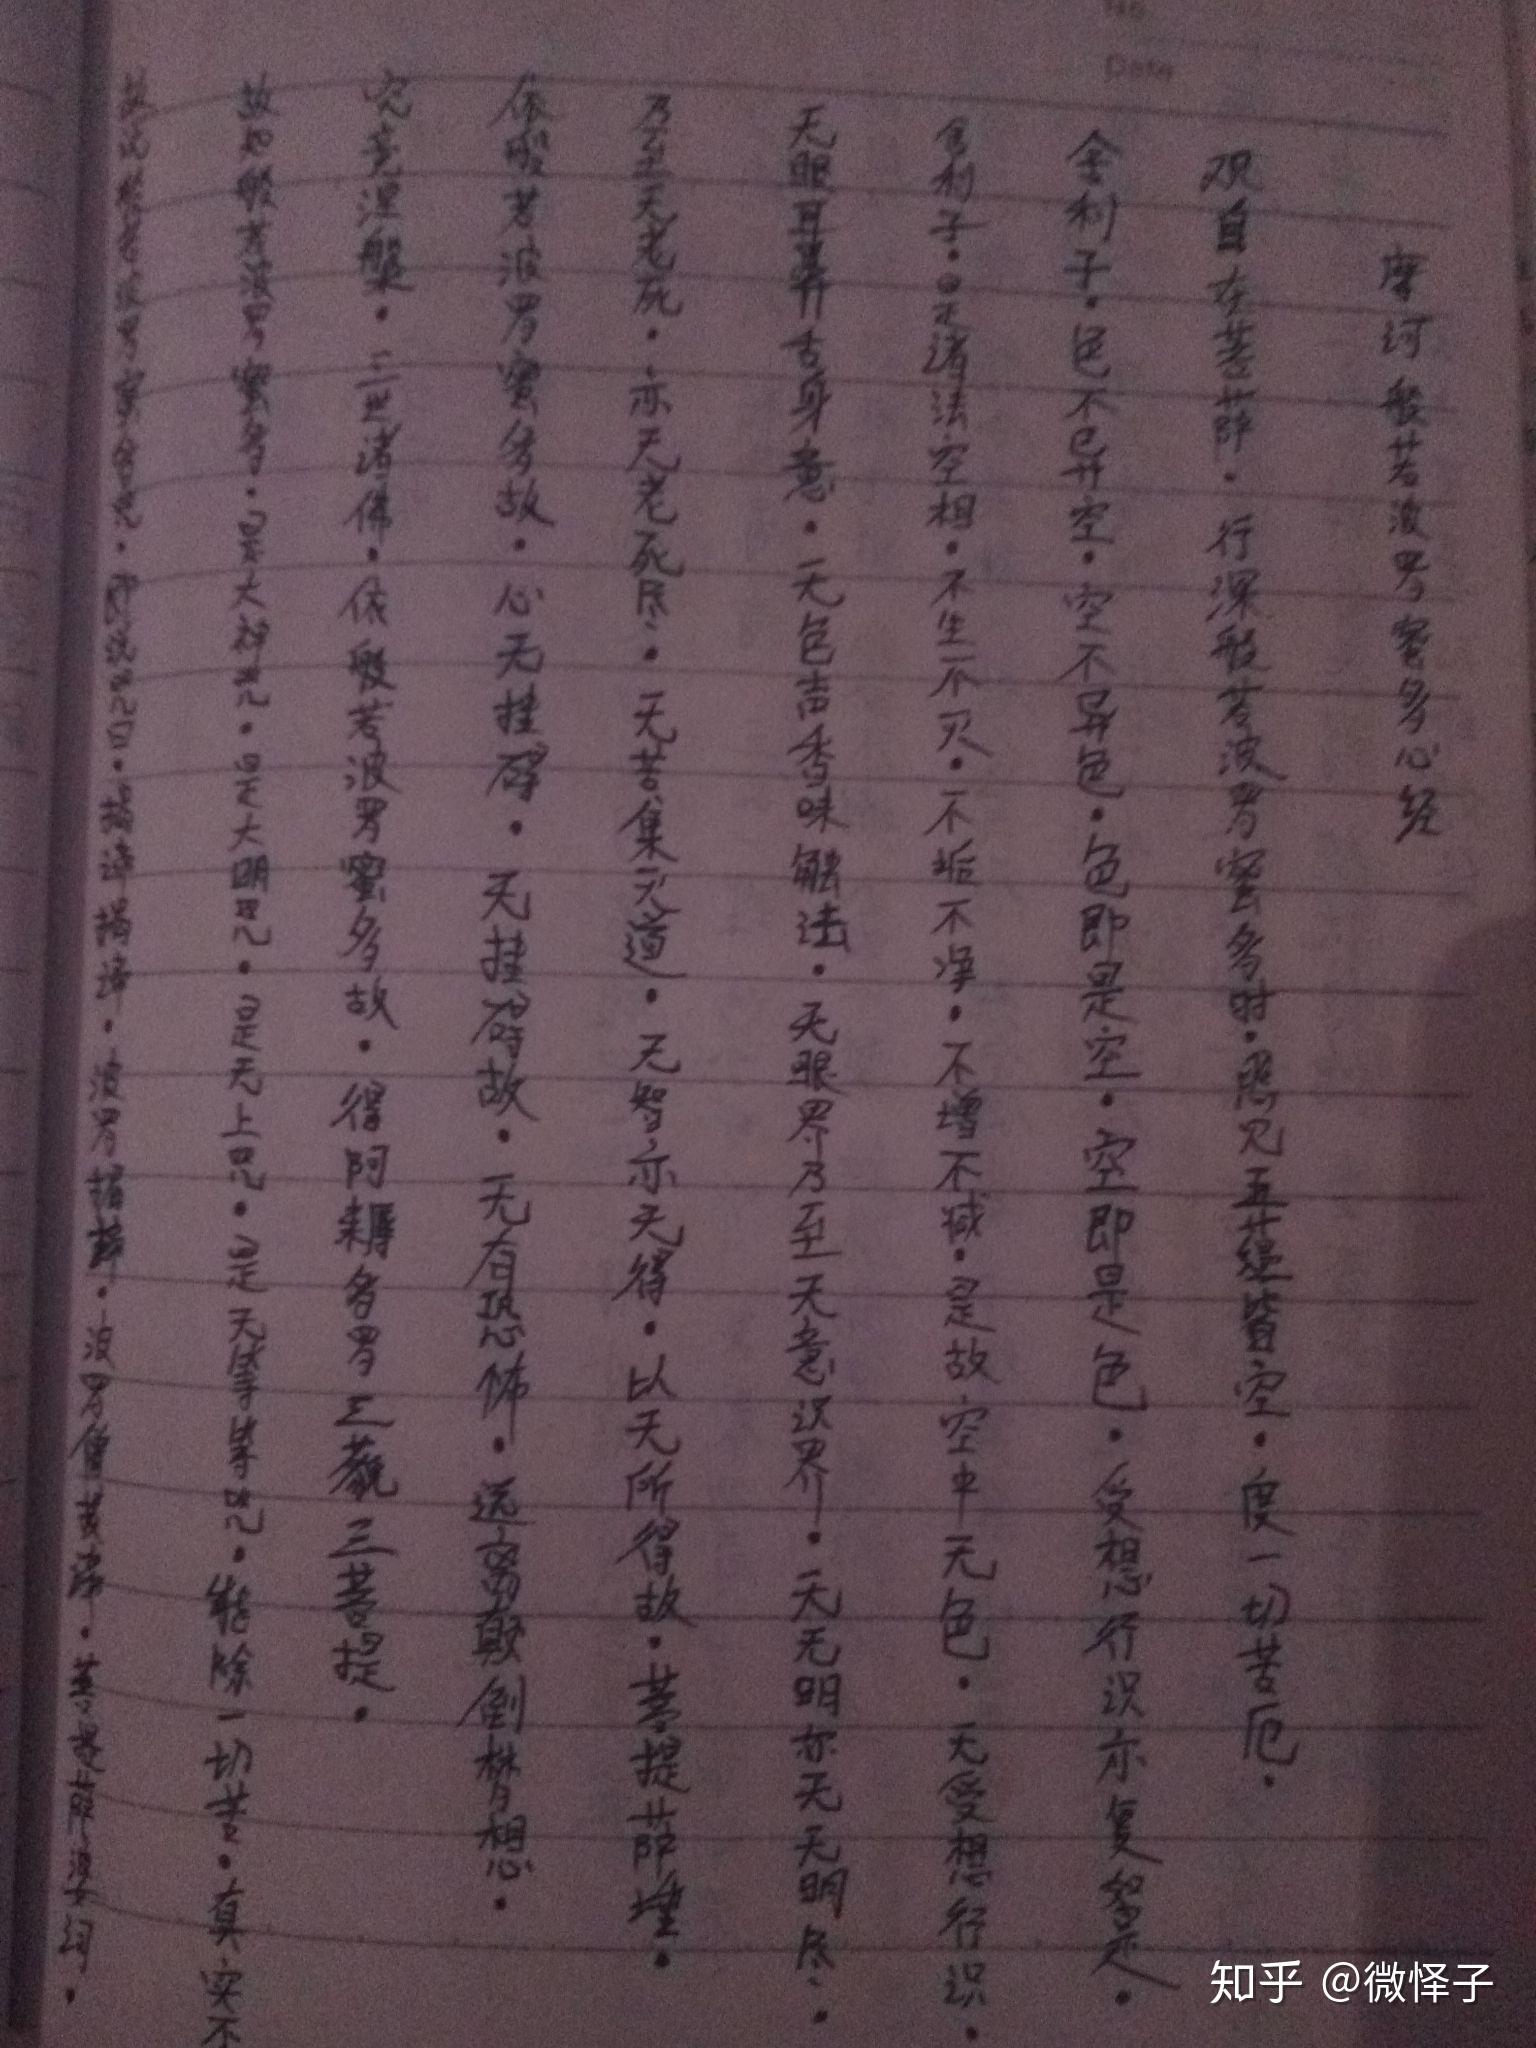 No.
Date
摩诃般若波罗蜜多心经
观自在菩萨·行深般若波罗蜜多时·照见五蕴皆空·度一切苦厄·
舍利子·色不异空·空不异色·色即是空·空即是色·受想行识亦复如是·
舍利子·是诸法空相·不生不灭·不垢不净·不增不减·是故空中无色·无受想行识·
无眼耳鼻舌身意·无色声香味触法·无眼界乃至无意识界·无无明亦无无明尽·
乃至无老死·亦无老死尽·无苦集灭道·无智亦无得·以无所得故·菩提萨埵·
依般若波罗蜜多故·心无挂碍·无挂碍故·无有恐怖·远离颠倒梦想·
究竟涅槃·三世诸佛·依般若波罗蜜多故·得阿耨多罗三藐三菩提·
故知般若波罗蜜多·是大神咒·是大明咒·是无上咒·是无等等咒·能除一切苦·真实不
故说般若波罗蜜多咒·即说咒曰·揭谛揭谛·波罗揭谛·波罗僧揭谛·菩提萨婆诃·
知乎 @微怿子